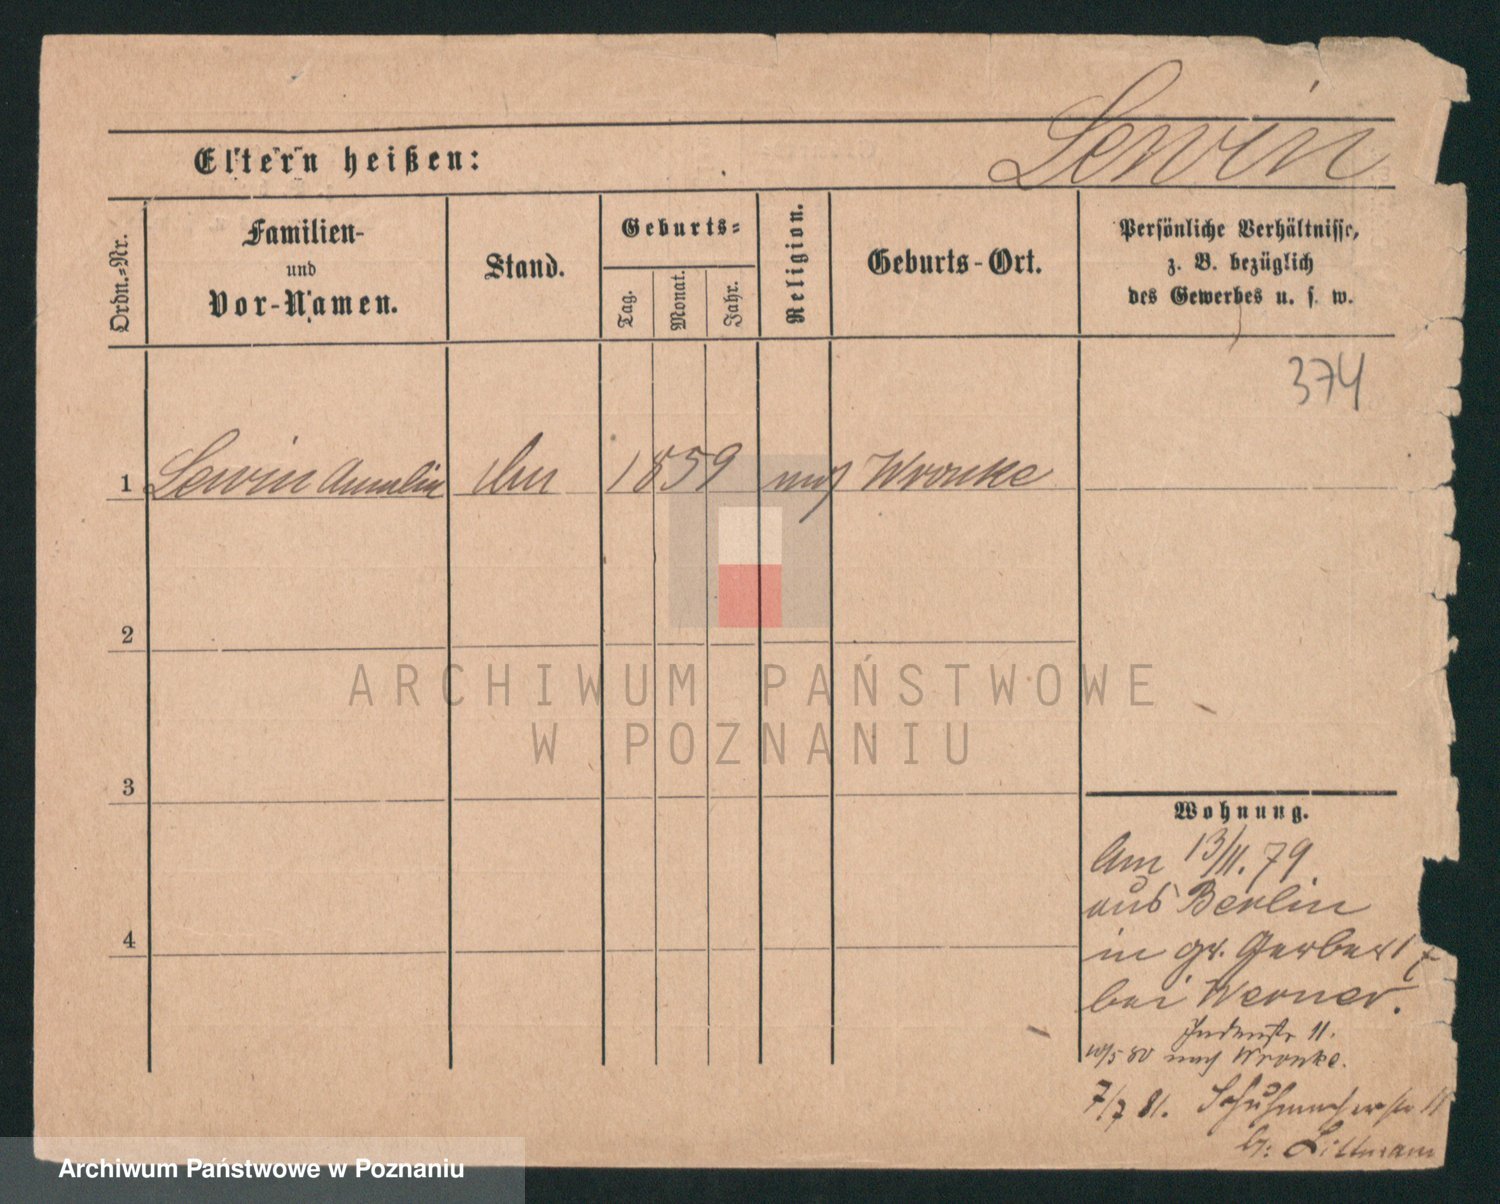 Lewin
Eltern heißen:
Ordn.-Nr.
Familien-
und
Vor-Namen.
Stand.
Geburts-
Tag.
Monat.
Jahr.
Religion.
Geburts-Ort.
Persönliche Verhältnisse,
z. B. bezüglich
des Gewerbes u. s. w.
374
1 Lewin 1859 Wronke
2
3
4
Wohnung.
Am 13/11. 79.
aus Berlin
in gr. Gerberst
bei Werner.
Judenstr 11.
10/5 80 nach Wronke.
7/7 81. Schuhmacherstr 11
b: Littmann
ARCHIWUM PAŃSTWOWE
W POZNANIU
Archiwum Państwowe w Poznaniu